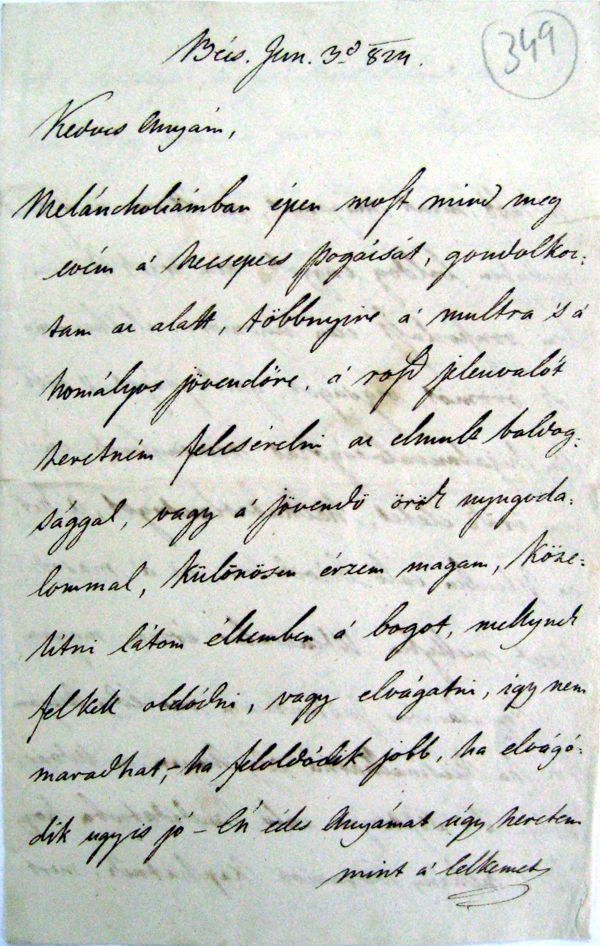 349
Bécs. Jun. 3d 824.
Kedves Anyám,
Meláncholiámban épen most mind meg
evém á hecsepecs pogácsát, gondolkoz:
tam az alatt, többnyire á multra 's á
homályos jövendőre, á rosz jelenvalót
szeretném felcsérelni az elmult boldog:
sággal, vagy á jövendő örök nyugoda:
lommal, különösen érzem magam, köze:
litni látom éltemben á bogot, mellynek
fel kell oldódni, vagy elvágatni, igy nem
maradhat, – ha feloldódik jobb, ha elvágó:
dik ugyis jó – Én édes Anyámat úgy szeretem
mint á lelkemet